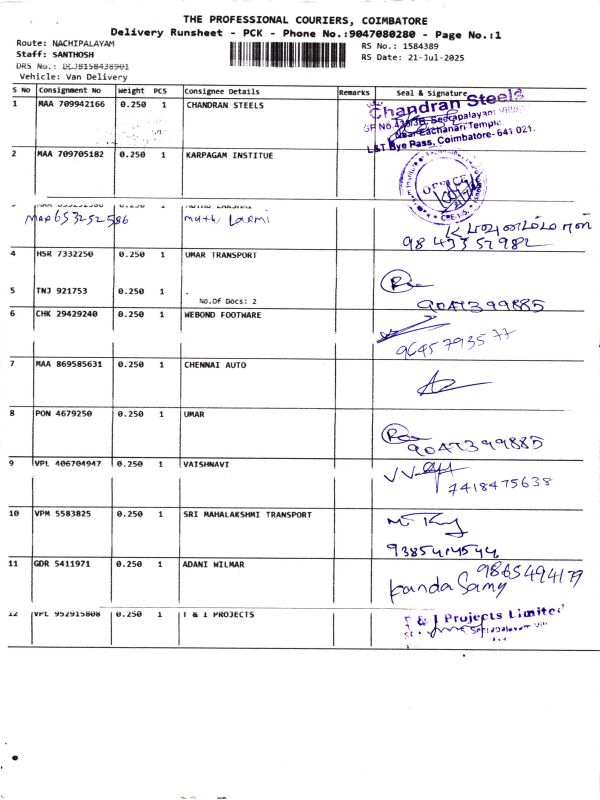 THE PROFESSIONAL COURIERS, COIMBATORE
Delivery Runsheet - PCK - Phone No.:9047080280 - Page No.:1
Route: NACHIPALAYAM
RS No.: 1584389
Staff: SANTHOSH
RS Date: 21-Jul-2025
DRS No.: DCJB158438901
Vehicle: Van Delivery
S No Consignment No Weight PCS Consignee Details Remarks Seal & Signature
1 MAA 709942166 0.250 1 CHANDRAN STEELS
Chandran Steels
SF No.418/3B, Seerapalayam Village
Near Eachanari Temple
L&T Bye Pass, Coimbatore- 641 021.
2 MAA 709705182 0.250 1 KARPAGAM INSTITUE
OFFICE
3
MAA 653252586 muthu Laxmi
98 43357982
4 HSR 7332250 0.250 1 UMAR TRANSPORT
5 TNJ 921753 0.250 1 .
No.Of Docs: 2
9047399885
6 CHK 29429240 0.250 1 WEBOND FOOTWARE
9645793577
7 MAA 869585631 0.250 1 CHENNAI AUTO
8 PON 4679250 0.250 1 UMAR
9047399885
9 VPL 406704947 0.250 1 VAISHNAVI
7418475638
10 VPM 5583825 0.250 1 SRI MAHALAKSHMI TRANSPORT
9385414544
11 GDR 5411971 0.250 1 ADANI WILMAR
9865494179
kanda Samy
12 VPL 952915808 0.250 1 T & I PROJECTS
& I Projects Limited